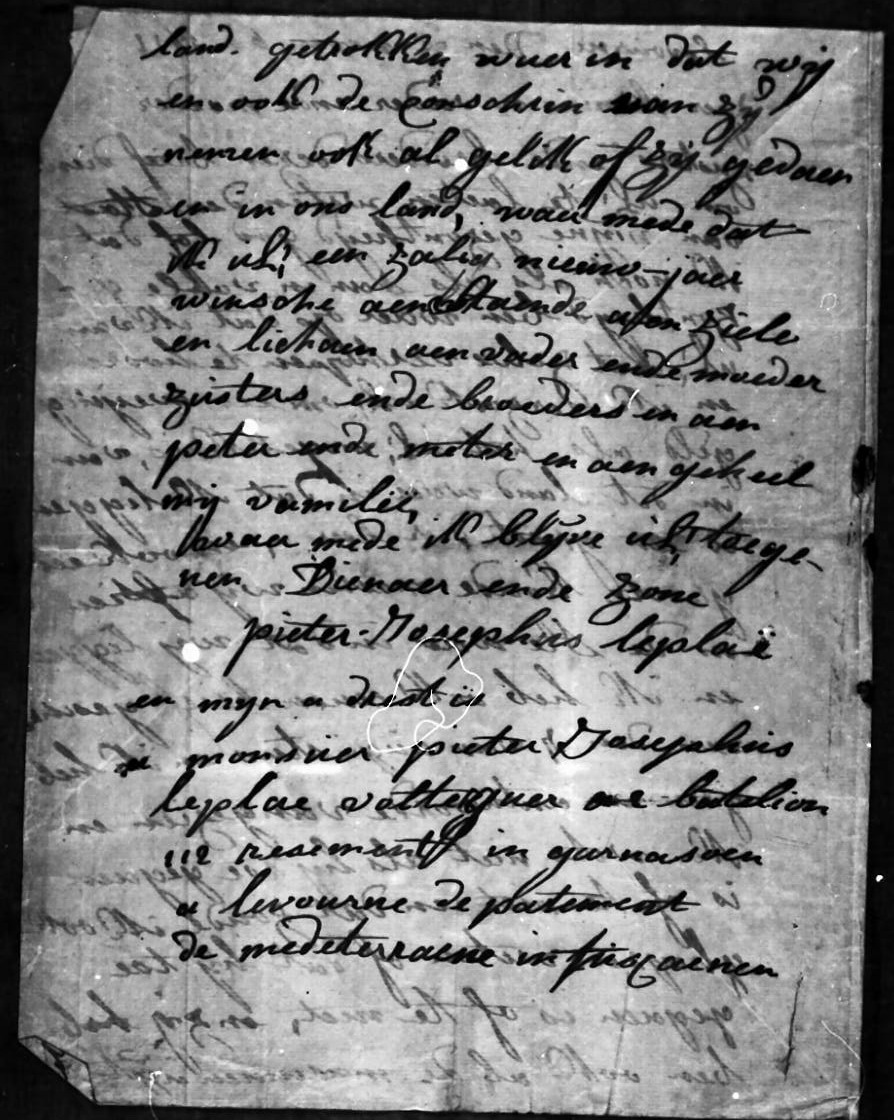 land. getrokken waer in dat wij
en ook de Conschrin van zÿ
nemen ook al gelik of zij gedaen
en in ons land, waer mede dat
ik ul: een zalig nieuw-jaer
winsche aengaende van ziele
en lichaem aen vader ende moeder
zusters ende broeders en aen
peter ende meter en aen geheel
mij vamilij,
waer mede ik blijve ul: toege-
nen Dienaer ende zone
pieter Josephus leplaë
en myn a drest is
a monsuer pieter Josephus
leplae voltesuer batelion
112 resement in garnasoen
a levourne de patement
de medeterraene in